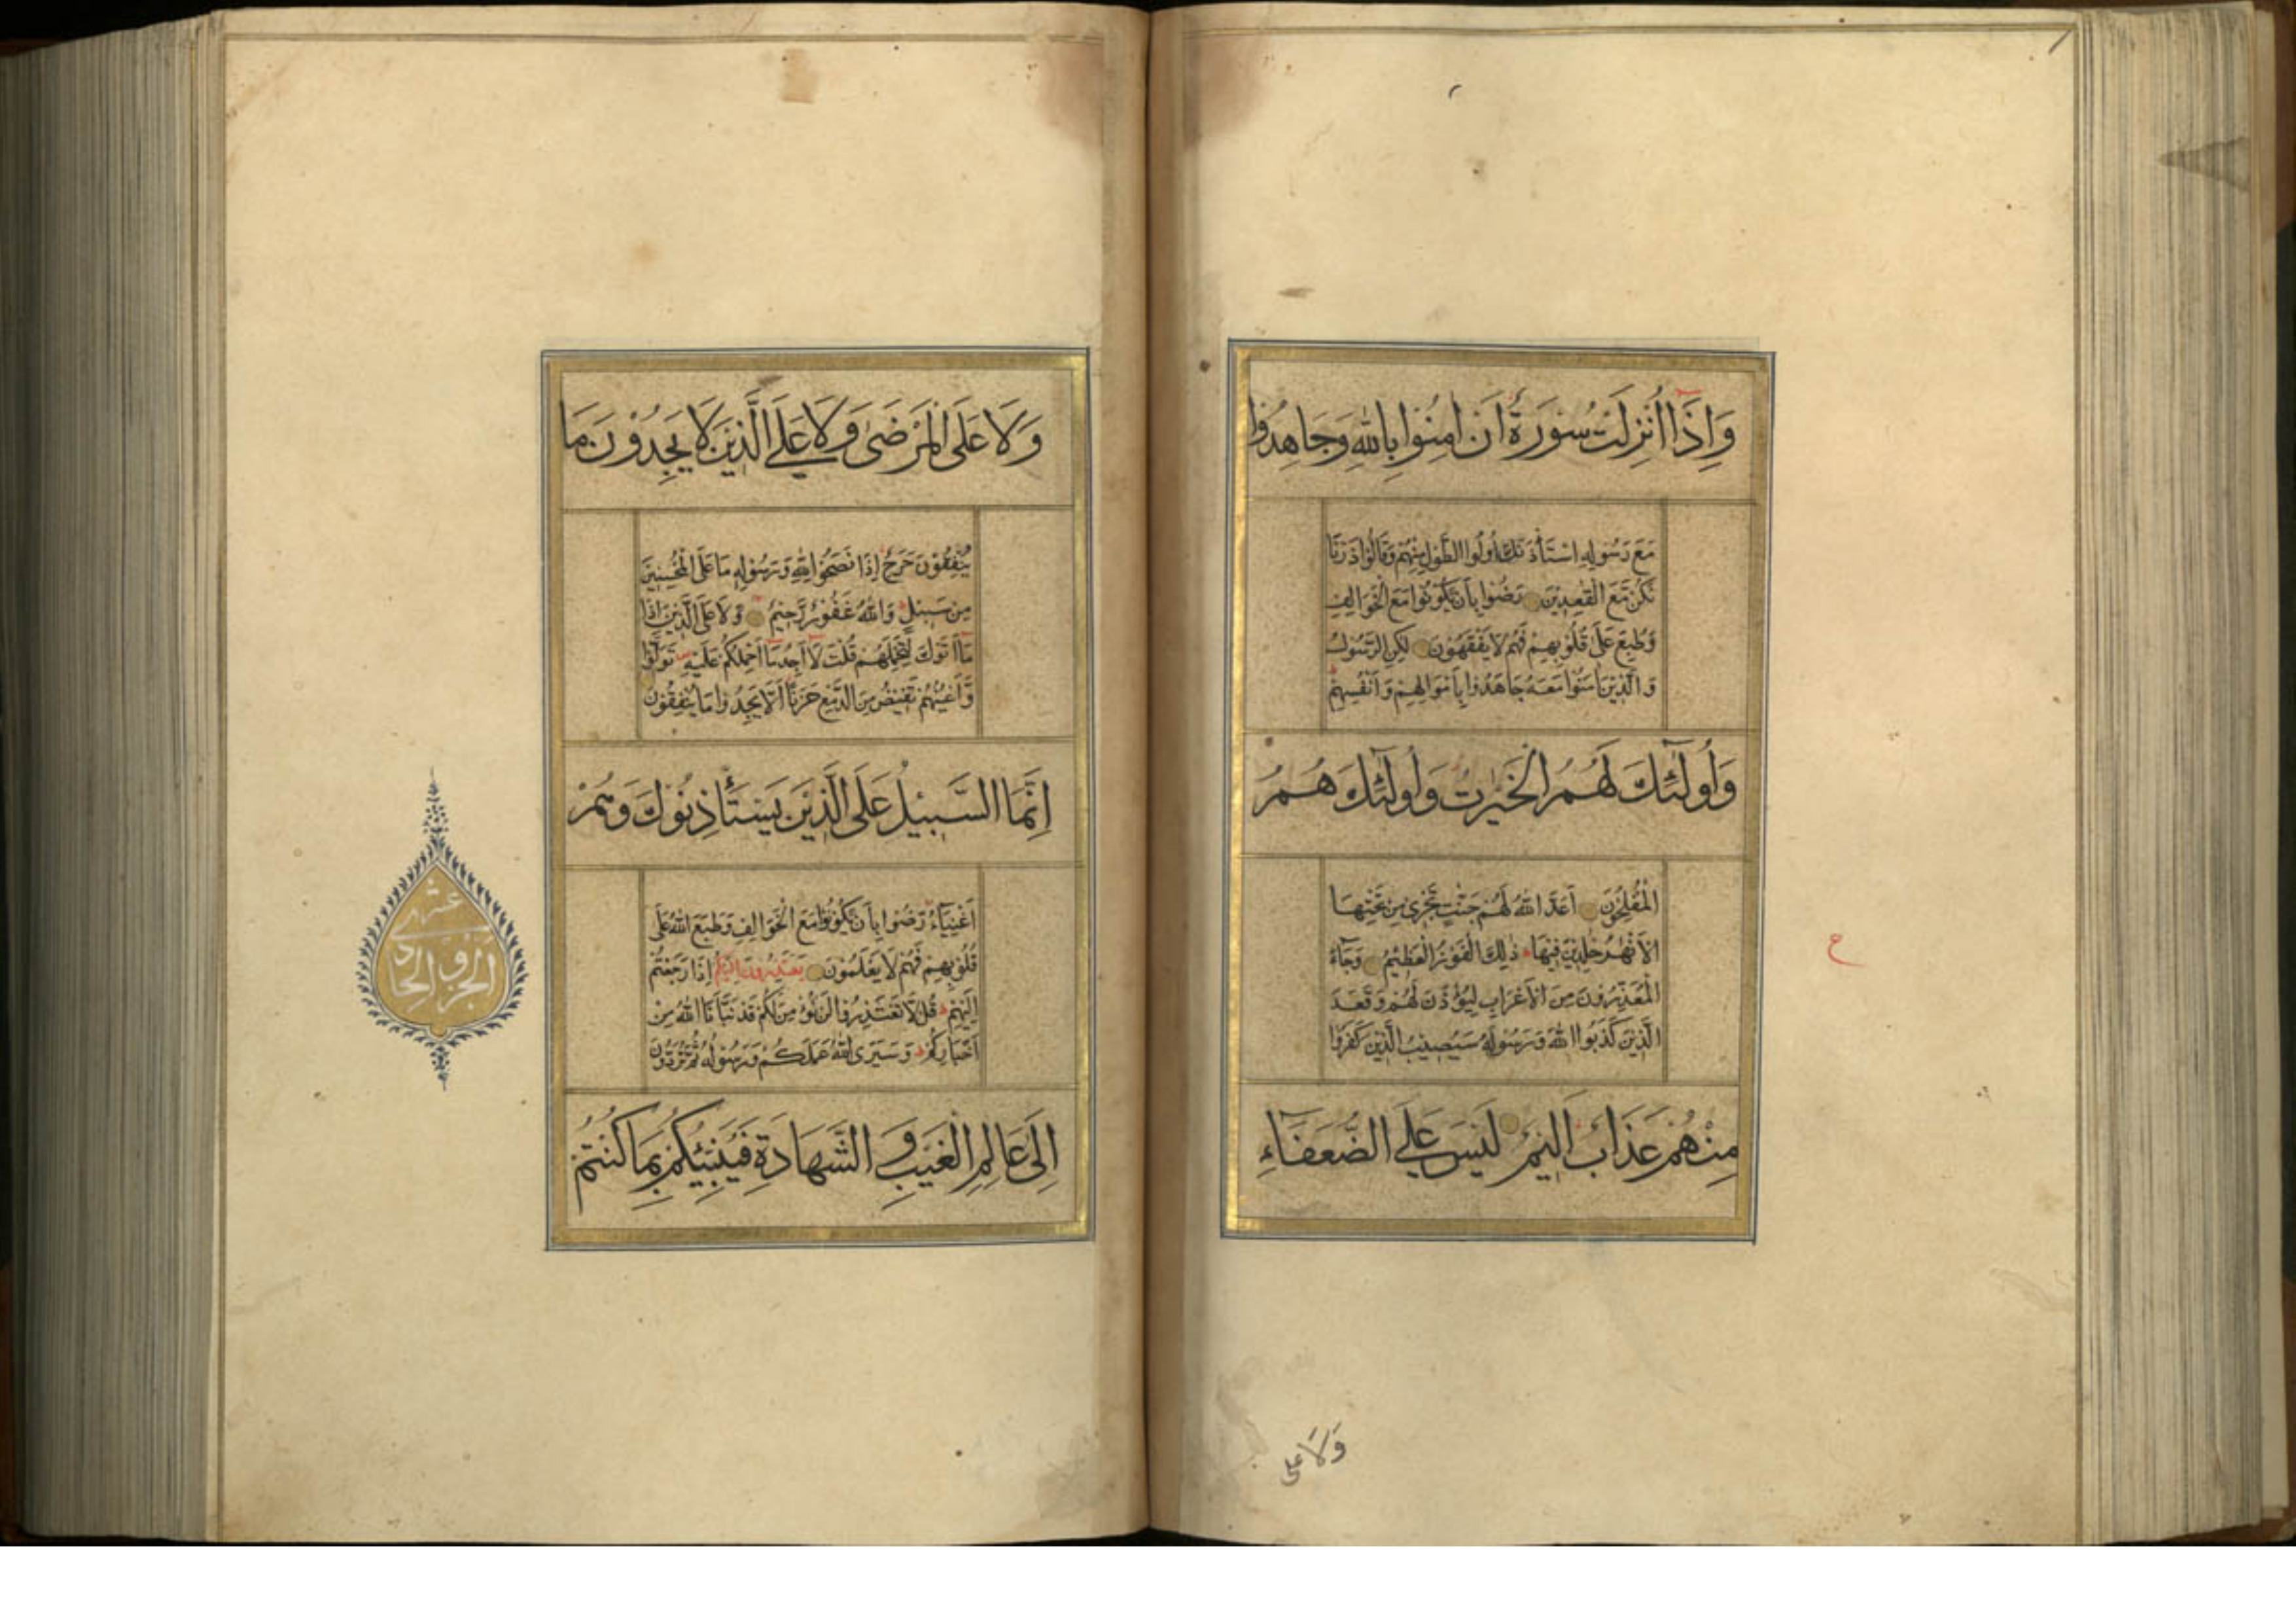 وَاِذَا اُنْزِلَتْ سُوْرَةٌ اَنْ اٰمِنُوْا بِاللّٰهِ وَجَاهِدُوْا
مَعَ رَسُوْلِهِ اسْتَأْذَنَكَ اُولُوا الطَّوْلِ مِنْهُمْ وَقَالُوْا ذَرْنَا
نَكُنْ مَّعَ الْقٰعِدِيْنَ رَضُوْا بِاَنْ يَّكُوْنُوْا مَعَ الْخَوَالِفِ
وَطُبِعَ عَلٰى قُلُوْبِهِمْ فَهُمْ لَا يَفْقَهُوْنَ لٰكِنِ الرَّسُوْلُ
وَالَّذِيْنَ اٰمَنُوْا مَعَهٗ جَاهَدُوْا بِاَمْوَالِهِمْ وَاَنْفُسِهِمْ
وَاُولٰٓئِكَ لَهُمُ الْخَيْرٰتُ وَاُولٰٓئِكَ هُمُ
الْمُفْلِحُوْنَ اَعَدَّ اللّٰهُ لَهُمْ جَنّٰتٍ تَجْرِيْ مِنْ تَحْتِهَا
الْاَنْهٰرُ خٰلِدِيْنَ فِيْهَا ذٰلِكَ الْفَوْزُ الْعَظِيْمُ وَجَآءَ
الْمُعَذِّرُوْنَ مِنَ الْاَعْرَابِ لِيُؤْذَنَ لَهُمْ وَقَعَدَ
الَّذِيْنَ كَذَبُوا اللّٰهَ وَرَسُوْلَهٗ سَيُصِيْبُ الَّذِيْنَ كَفَرُوْا
مِنْهُمْ عَذَابٌ اَلِيْمٌ لَيْسَ عَلَى الضُّعَفَآءِ
ع
وَلَا عَلَى
وَلَا عَلَى الْمَرْضٰى وَلَا عَلَى الَّذِيْنَ لَا يَجِدُوْنَ مَا
يُنْفِقُوْنَ حَرَجٌ اِذَا نَصَحُوْا لِلّٰهِ وَرَسُوْلِهٖ مَا عَلَى الْمُحْسِنِيْنَ
مِنْ سَبِيْلٍ وَاللّٰهُ غَفُوْرٌ رَّحِيْمٌ وَلَا عَلَى الَّذِيْنَ اِذَا
مَآ اَتَوْكَ لِتَحْمِلَهُمْ قُلْتَ لَآ اَجِدُ مَآ اَحْمِلُكُمْ عَلَيْهِ تَوَلَّوْا
وَّاَعْيُنُهُمْ تَفِيْضُ مِنَ الدَّمْعِ حَزَنًا اَلَّا يَجِدُوْا مَا يُنْفِقُوْنَ
اِنَّمَا السَّبِيْلُ عَلَى الَّذِيْنَ يَسْتَأْذِنُوْنَكَ وَهُمْ
اَغْنِيَآءُ رَضُوْا بِاَنْ يَّكُوْنُوْا مَعَ الْخَوَالِفِ وَطَبَعَ اللّٰهُ عَلٰى
قُلُوْبِهِمْ فَهُمْ لَا يَعْلَمُوْنَ يَعْتَذِرُوْنَ اِلَيْكُمْ اِذَا رَجَعْتُمْ
اِلَيْهِمْ قُلْ لَّا تَعْتَذِرُوْا لَنْ نُّؤْمِنَ لَكُمْ قَدْ نَبَّاَنَا اللّٰهُ مِنْ
اَخْبَارِكُمْ وَسَيَرَى اللّٰهُ عَمَلَكُمْ وَرَسُوْلُهٗ ثُمَّ تُرَدُّوْنَ
اِلٰى عَالِمِ الْغَيْبِ وَ الشَّهَادَةِ فَيُنَبِّئُكُمْ بِمَا كُنْتُمْ
عشر
الجزو الحادى